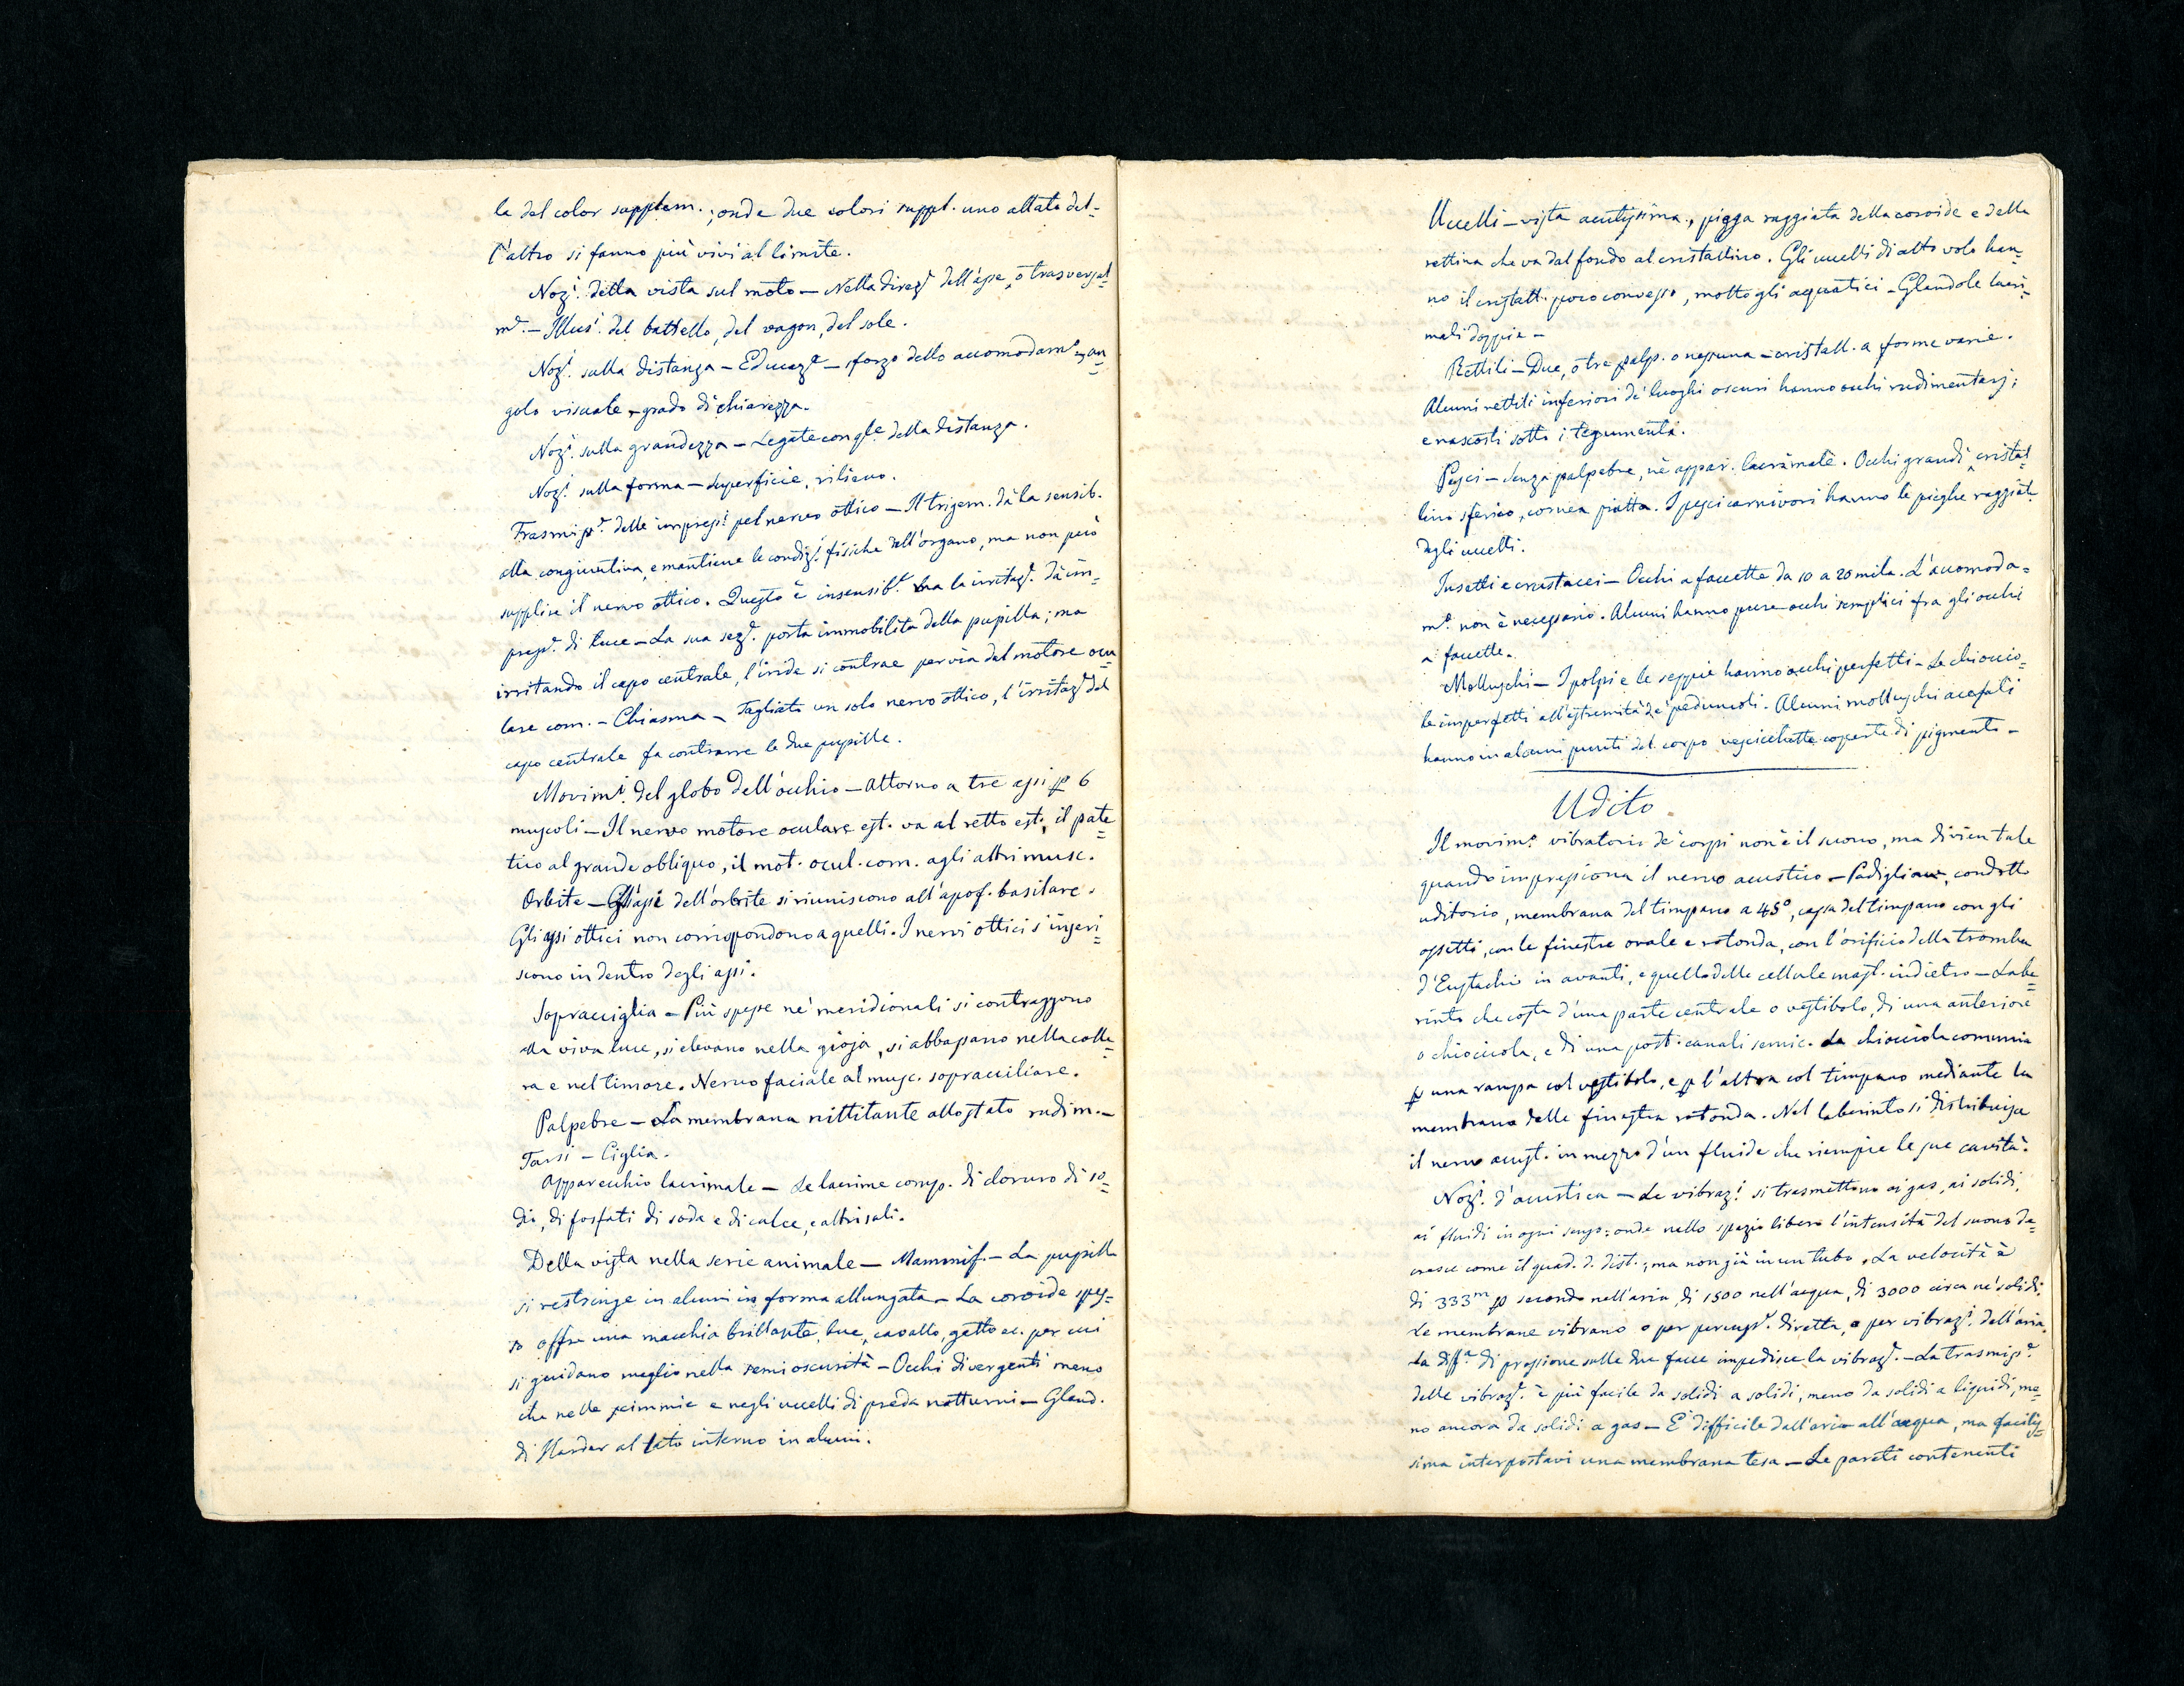 la del color supplem.; onde due colori suppl. uno allato del-
l'altro si fanno più vivi al limite.
Nozⁱ. della vista sul moto — Nella direzᵉ dell'asse, o trasversal=
mᵉ. — Illusⁱ. del battello, del vagon, del sole.
Nozⁱ. sulla distanza — Educazᵉ — sforzo dello accomodamᵒ, an=
golo visuale, grado di chiarezza.
Nozⁱ. sulla grandezza — Legate con qle della distanza.
Nozⁱ. sulla forma — Superficie, rilievo.
Trasmissᵉ. delle impressⁱ pel nervo ottico — Il trigem. dà la sensib.
alla congiuntiva, e mantiene le condizⁱ. fisiche dell'organo, ma non può
supplire il nervo ottico. Questo è insensibᵉ. ma la irritazᵉ. dà im=
pressᵉ. di luce — La sua sezᵉ. porta immobilità della pupilla; ma
irritando il capo centrale, l'iride si contrae per via del motore ocu=
lare com. — Chiasma — Tagliato un solo nervo ottico, l'irritazᵉ del
capo centrale fa contrarre le due pupille.
Movimⁱ. del globo dell'occhio — Attorno a tre assi p 6
muscoli — Il nervo motore oculare est. va al retto est., il pate=
tico al grande obliquo, il mot. ocul. com. agli altri musc.
Orbite — Gli assi dell'orbite si riuniscono all'apof. basilare.
Gli assi ottici non corrispondono a quelli. I nervi ottici s'inseri=
scono in dentro degli assi.
Sopracciglia — Più spesse ne' meridionali si contraggono
alla viva luce, si elevano nella gioja, si abbassano nella colle=
ra e nel timore. Nervo faciale al musc. sopracciliare.
Palpebre — La membrana nittitante allo stato rudim. —
Tarsi — Ciglia.
Apparecchio lacrimale — Le lacrime comp. di cloruro di so=
dio, di fosfati di soda e di calce, e altri sali.
Della vista nella serie animale — Mammif. — La pupilla
si restringe in alcuni in forma allungata — La coroide spes=
so offre una macchia brillante, bue, cavallo, gatto ec. per cui
si guidano meglio nella semi oscurità — Occhi divergenti meno
che nelle scimmie e negli uccelli di preda notturni — Gland.
di Harder al lato interno in alcuni.
Uccelli — vista acutissima, piega raggiata della coroide e della
rettina che va dal fondo al cristallino. Gli uccelli di alto volo han=
no il cristall. poco convesso, molto gli acquatici — Glandole lacri=
mali doppie —
Rettili — Due, o tre palp. o nessuna — cristall. a forme varie.
Alcuni rettili inferiori de' luoghi oscuri hanno occhi rudimentarj;
e nascosti sotto i tegumenti.
Pesci — Senza palpebre, nè appar. lacrimale. Occhi grandi, cristal=
lino sferico, cornea piatta. I pesci carnivori hanno le pieghe raggiate
degli uccelli.
Insetti e crustacei — Occhi a faccette da 10 a 20 mila. L'accomoda=
mᵒ. non è necessario. Alcuni hanno pure occhi semplici fra gli occhi
a faccette.
Molluschi — I polpi e le seppie hanno occhi perfetti — Le chiocciо=
le imperfetti all'estremità de' peduncoli. Alcuni molluschi acefali
hanno in alcuni punti del corpo vescichette coperte di pigmento —
Udito
Il movimᵒ. vibratorio de' corpi non è il suono, ma divien tale
quando impressiona il nervo acustico — Padiglione, condotto
uditorio, membrana del timpano a 45°, cassa del timpano con gli
ossetti, con le finestre ovale e rotonda, con l'orificio della tromba
d'Eustachio in avanti, e quello delle cellule mast. indietro — Labe=
rinto che costa d'una parte centrale o vestibolo, di una anteriore
o chiocciola, e di una post. canali semic. La chiocciola comunica
p una rampa col vestibolo, e p l'altra col timpano mediante la
membrana della finestra rotonda. Nel laberinto si distribuisce
il nervo acust. in mezzo d'un fluido che riempie le sue cavità.
Nozⁱ. d'acustica — Le vibrazⁱ. si trasmettono ai gas, ai solidi,
ai fluidi in ogni senso: onde nello spazio libero l'intensità del suono de=
cresce come il quad. d. dist.; ma non già in un tubo. La velocità è
di 333ᵐ p secondo nell'aria, di 1500 nell'acqua, di 3000 circa ne' solidi.
Le membrane vibrano o per percussᵉ. diretta, o per vibrazⁱ. dell'aria.
La diffᵃ. di pressione sulle due facce impedisce la vibrazᵉ. — La trasmissᵉ.
delle vibrazⁱ. è più facile da solidi a solidi, meno da solidi a liquidi, me=
no ancora da solidi a gas — E' difficile dall'aria all'acqua, ma facilis=
sima interpostavi una membrana tesa — Le pareti contenenti